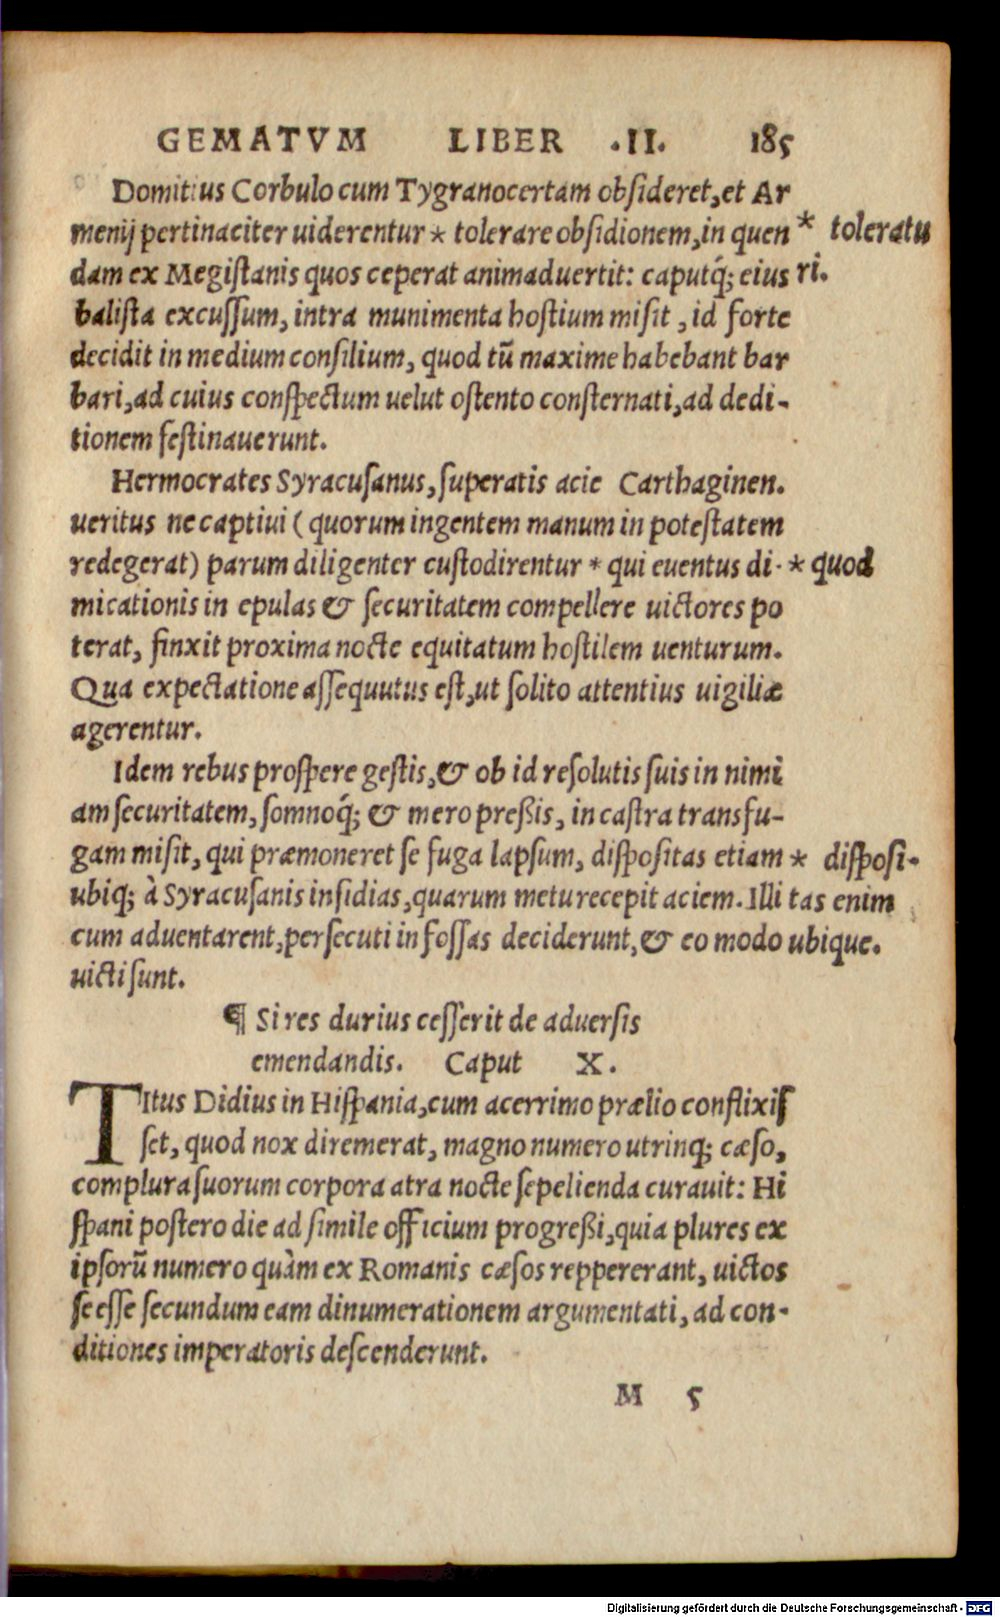 GEMATVM LIBER .II. 185
Domitius Corbulo cum Tygranocertam obsideret, et Ar
menij pertinaciter uiderentur * tolerare obsidionem, in quen * toleratu
dam ex Megistanis quos ceperat animaduertit: caputq́; eius ri.
balista excussum, intra munimenta hostium misit, id forte
decidit in medium consilium, quod tū maxime habebant bar
bari, ad cuius conspectum uelut ostento consternati, ad dedi-
tionem festinauerunt.
Hermocrates Syracusanus, superatis acie Carthaginen.
ueritus ne captiui ( quorum ingentem manum in potestatem
redegerat) parum diligenter custodirentur * qui euentus di- * quod
micationis in epulas & securitatem compellere uictores po
terat, finxit proxima nocte equitatum hostilem uenturum.
Qua expectatione assequutus est, ut solito attentius uigiliæ
agerentur.
Idem rebus prospere gestis, & ob id resolutis suis in nimi
am securitatem, somnoq́; & mero preßis, in castra transfu-
gam misit, qui præmoneret se fuga lapsum, dispositas etiam * disposi-
ubiq; à Syracusanis insidias, quarum metu recepit aciem. Illi tas enim
cum aduentarent, persecuti in fossas deciderunt, & eo modo ubique.
uicti sunt.
¶ Si res durius cesserit de aduersis
emendandis. Caput X.
TItus Didius in Hispania, cum acerrimo prælio conflixis
set, quod nox diremerat, magno numero utrinq; cæso,
complura suorum corpora atra nocte sepelienda curauit: Hi
spani postero die ad simile officium progreßi, quia plures ex
ipsorū numero quàm ex Romanis cæsos reppererant, uictos
se esse secundum eam dinumerationem argumentati, ad con-
ditiones imperatoris descenderunt.
M 5
Digitalisierung gefördert durch die Deutsche Forschungsgemeinschaft - DFG